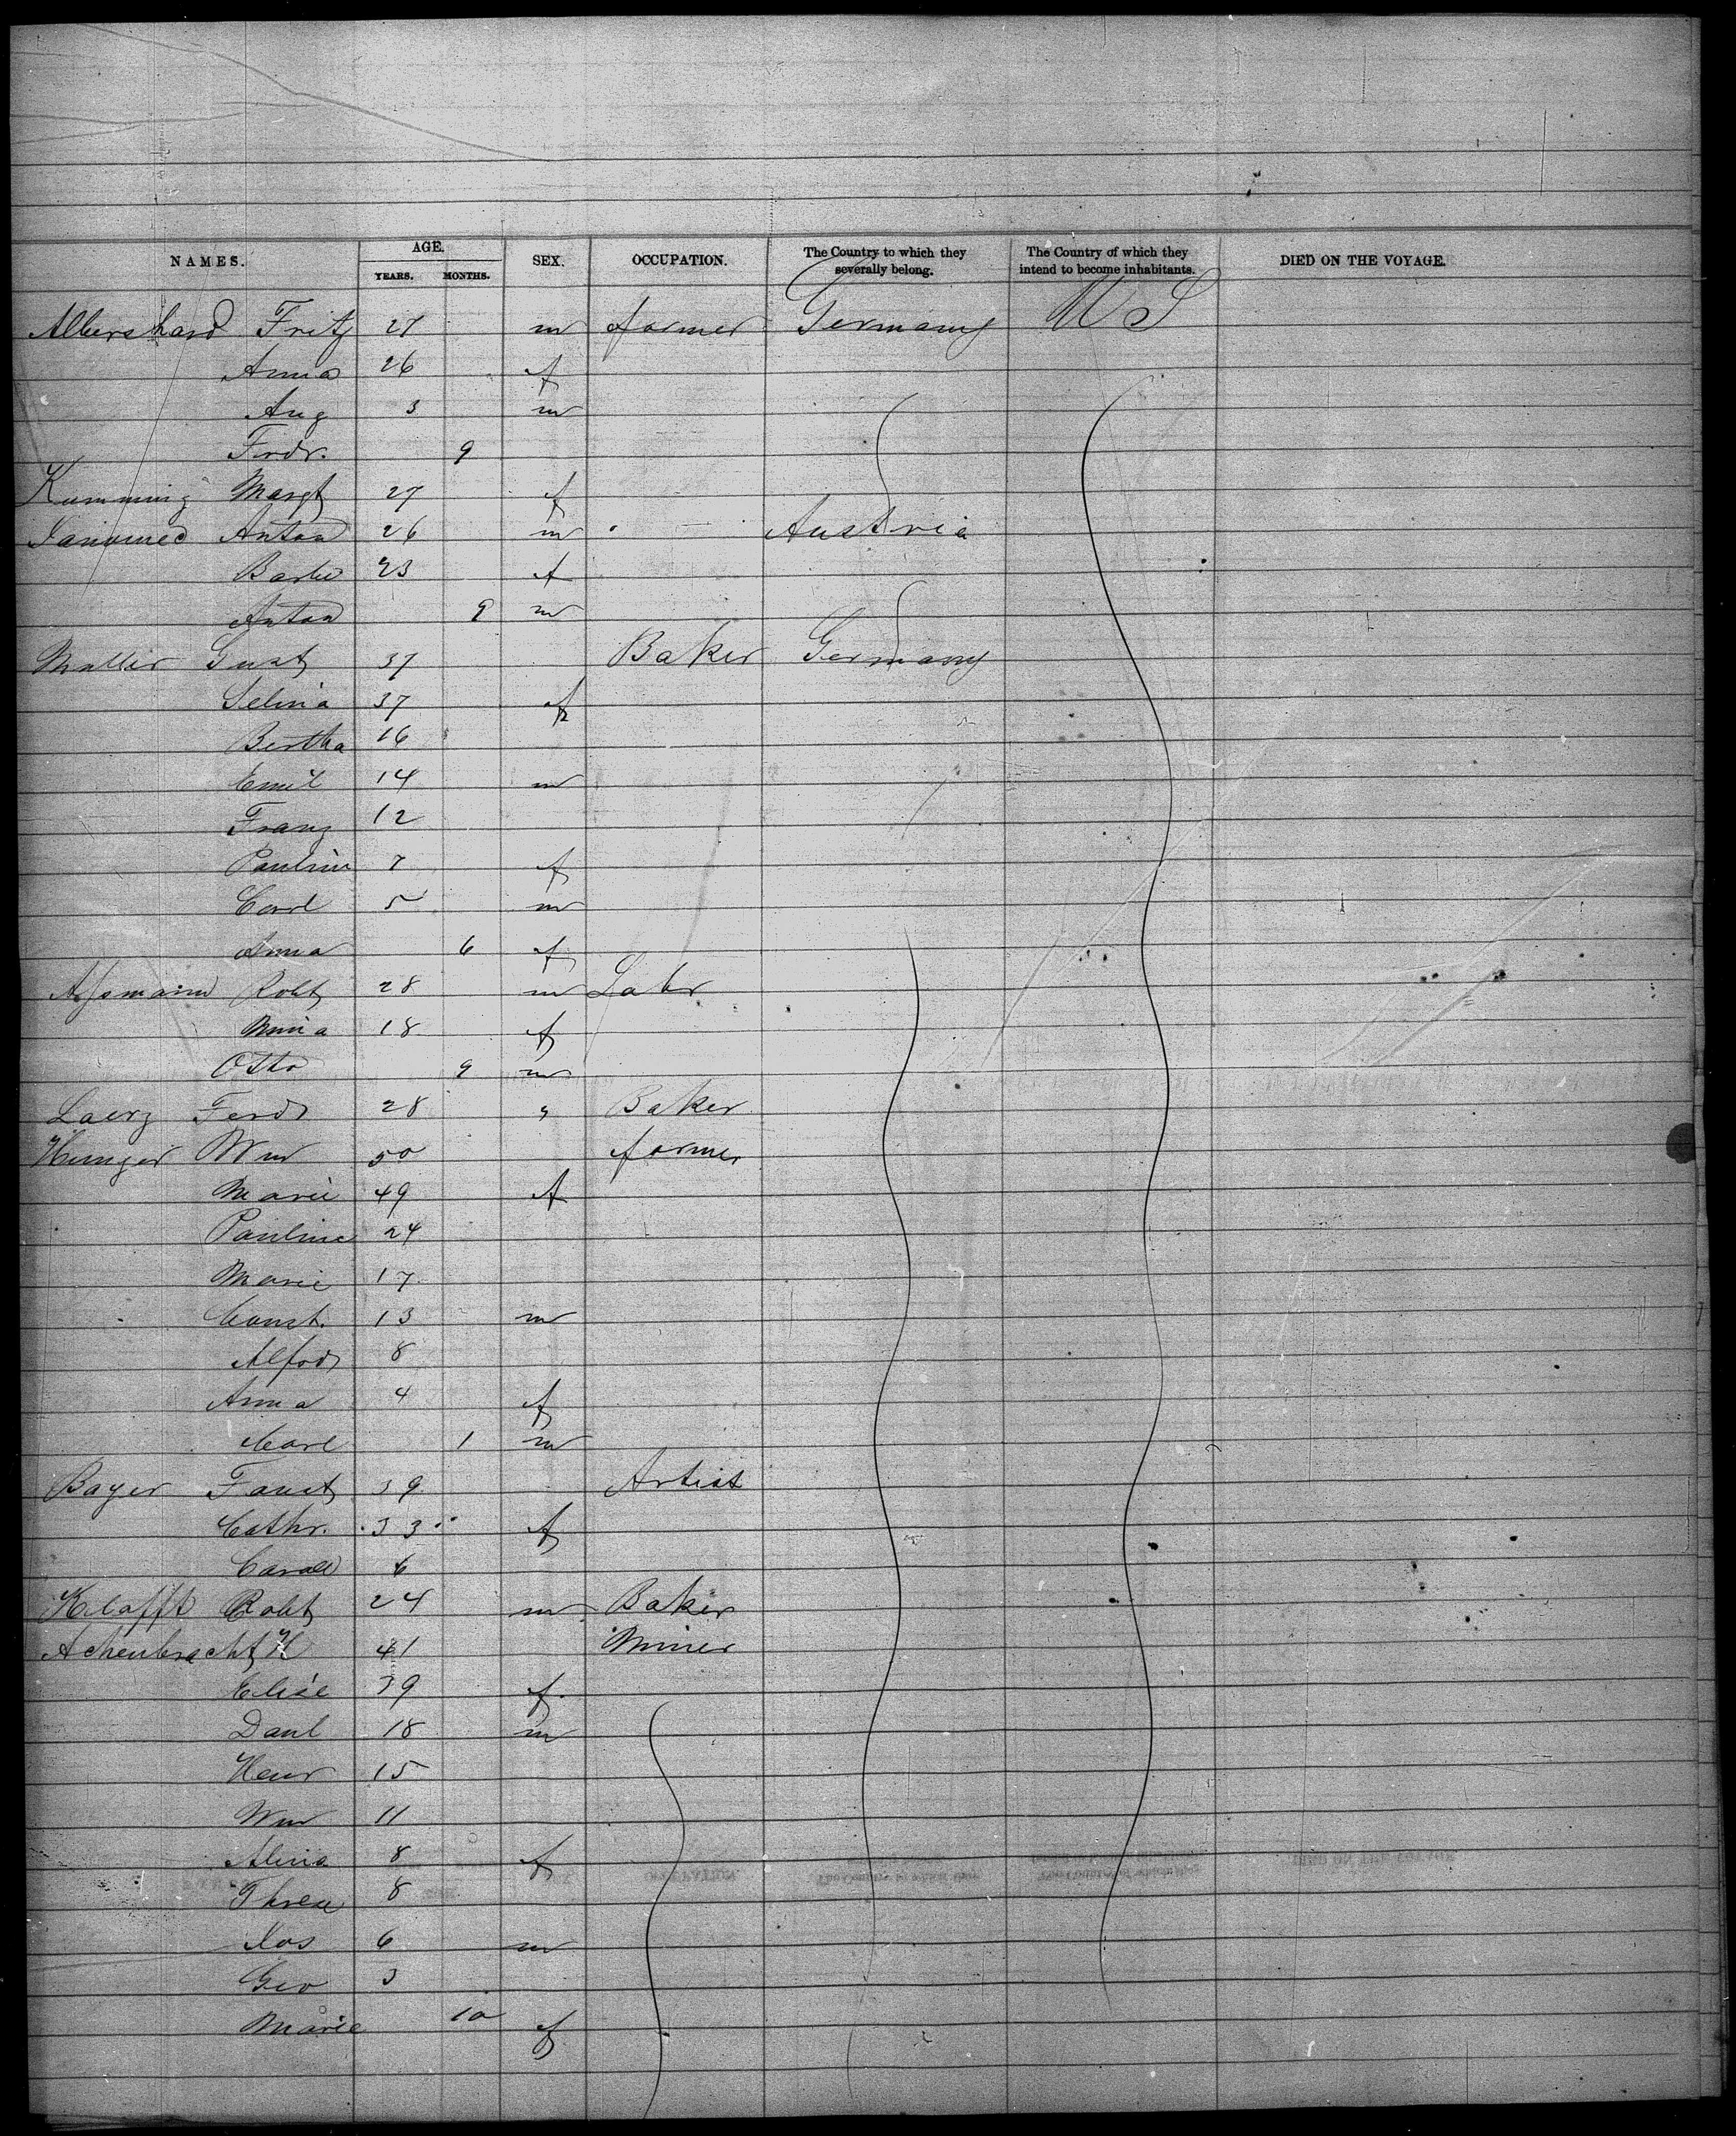 NAMES. AGE. YEARS. MONTHS. SEX. OCCUPATION. The Country to which they severally belong. The Country of which they intend to become inhabitants. DIED ON THE VOYAGE.
Albershard Fritz 27 m farmer Germany U S
Anna 26 f
Aug 3 m
Fredr. 9
Kumming Margt 27 f
Anton 26 m Austria
Barbe 23 f
Anton 9 m
Muller Gust 37 Baker Germany
Selina 37 f
Bertha 16
Emil 14 m
Franz 12
Pauline 7 f
Carl 5 m
Anna 6 f
Assmann Robt 28 m Labr
Mina 18 f
Otto 9 m
Laerz Ferd 28 " Baker
Hunger Wm 50 farmer
Marie 49 f
Pauline 24
Marie 17
Const. 13 m
Alfred 8
Anna 4 f
Carl 1 m
Bayer Faust 39 Artist
Cathr. 33 f
Carole 6
Klafft Robt 24 m Baker
Achenbracht H 41 Miner
Elise 39 f
Danl 18 m
Henr 15
Wm 11
Alina 8 f
Threse 8
Jos 6 m
Geo 3
Marie 10 f